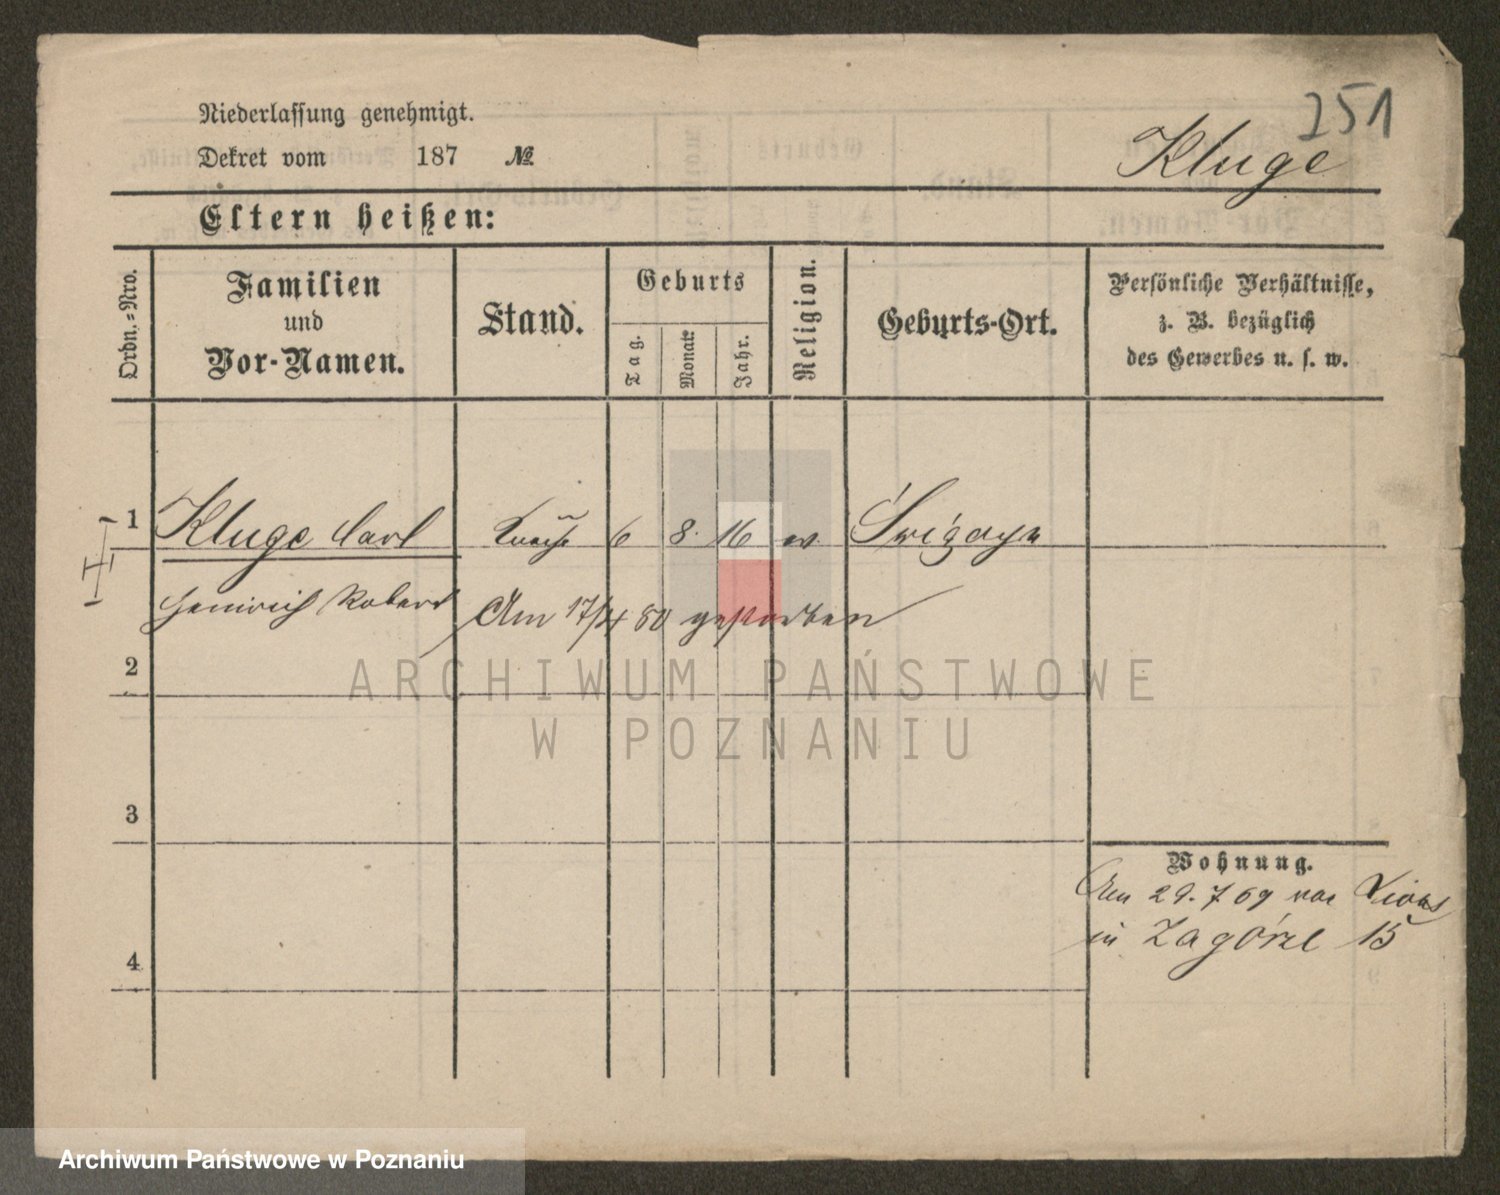 251
Kluge
Niederlassung genehmigt.
Dekret vom 187 №
Eltern heißen:
Ordn.-Nro.
Familien
und
Vor-Namen.
Stand.
Geburts
Tag.
Monat.
Jahr.
Religion.
Geburts-Ort.
Persönliche Verhältnisse,
z. B. bezüglich
des Gewerbes u. s. w.
1 Kluge Carl 6 8. 16
Heinrich Robert
Am 17/4 80 gestorben
2
3
Wohnung.
Am 29. 7 69 von
in Zagórze 15
4
ARCHIWUM PAŃSTWOWE
W POZNANIU
Archiwum Państwowe w Poznaniu